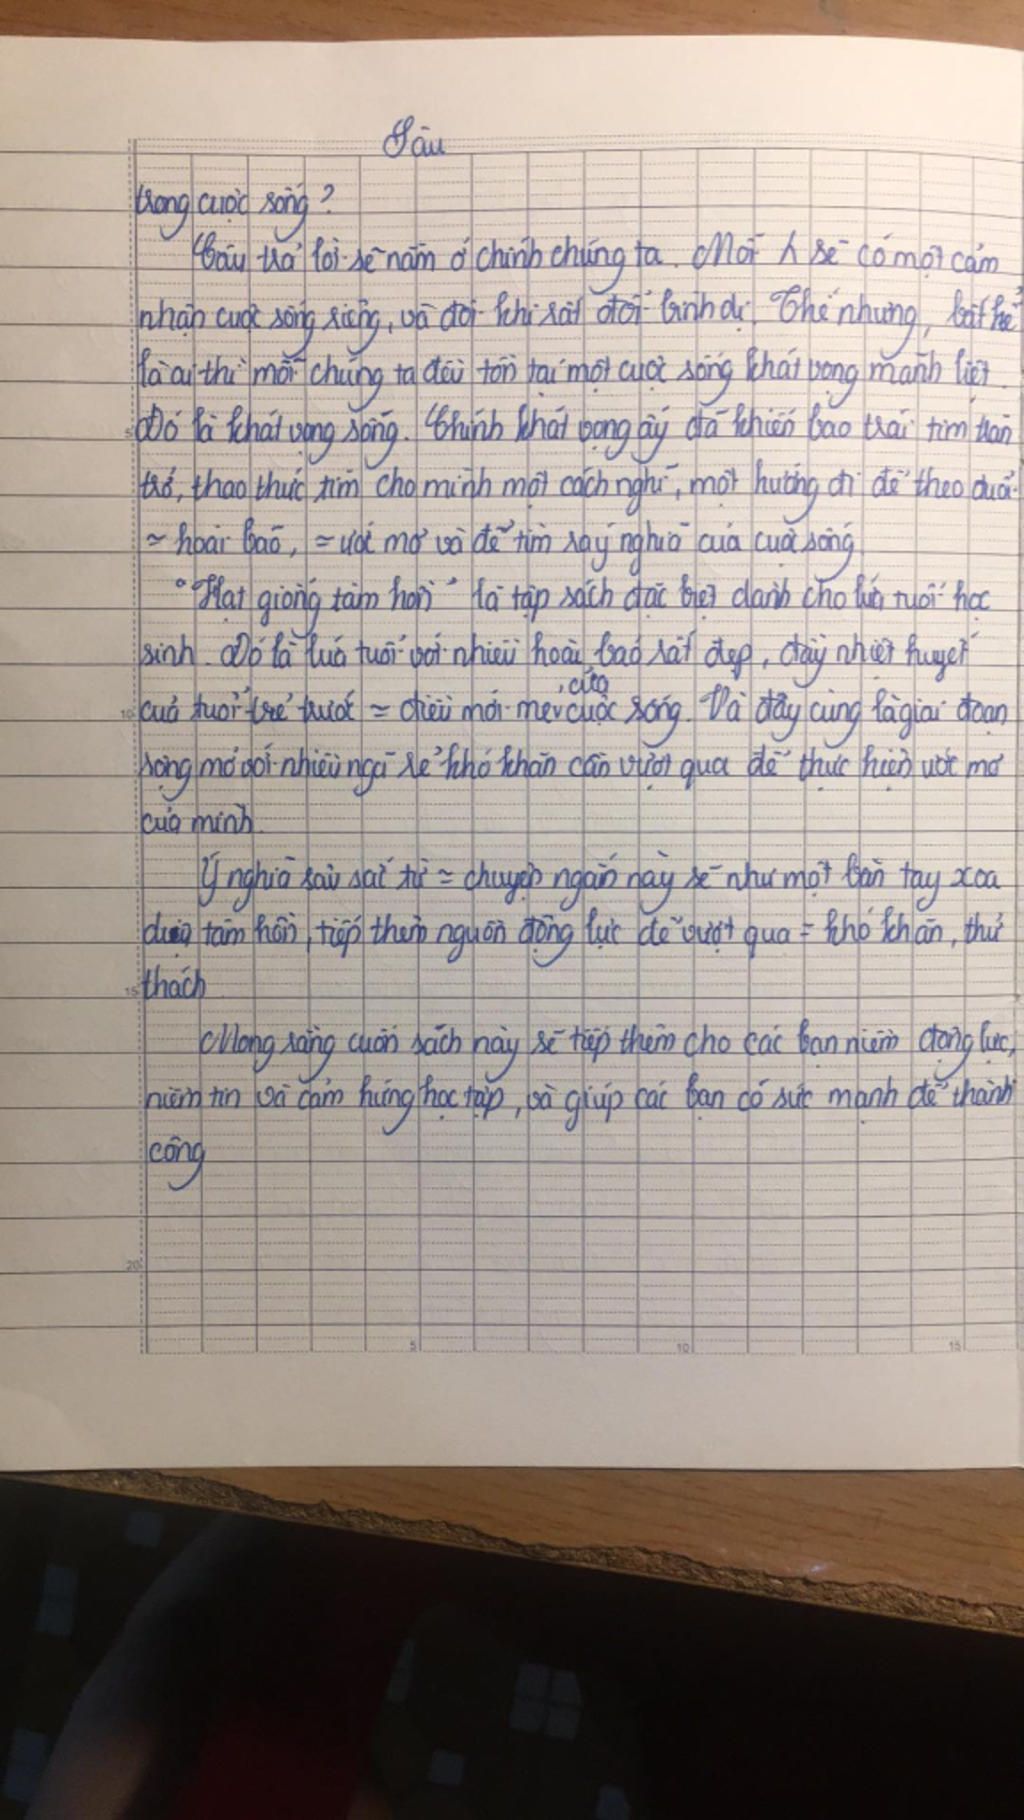 Sâu
trong cuộc sống?
Câu trả lời sẽ nằm ở chính chúng ta. Mỗi λ sẽ có một cảm
nhận cuộc sống riêng, và đôi khi rất đỗi bình dị. Thế nhưng, bất kể
là ai thì mỗi chúng ta đều tồn tại một cuộc sống khát vọng mãnh liệt.
5 Đó là khát vọng sống. Chính khát vọng ấy đã khiến bao trái tim trăn
trở, thao thức tìm cho mình một cách nghĩ, một hướng đi để theo đuổi
≈ hoài bão, ≈ ước mơ và để tìm ra ý nghĩa của cuộc sống
"Hạt giống tâm hồn" là tập sách đặc biệt dành cho lứa tuổi học
sinh. Đó là lứa tuổi với nhiều hoài bão rất đẹp, đầy nhiệt huyết
của
10 của tuổi trẻ trước ≈ điều mới mẻ cuộc sống. Và đây cũng là giai đoạn
sống mở với nhiều ngã rẽ khó khăn cần vượt qua để thực hiện ước mơ
của mình.
Ý nghĩa sâu sắc từ ≈ chuyện ngắn này sẽ như một bàn tay xoa
dịu tâm hồn, tiếp thêm nguồn động lực để vượt qua = khó khăn, thử
15 thách
Mong rằng cuốn sách này sẽ tiếp thêm cho các bạn niềm động lực,
niềm tin và cảm hứng học tập, và giúp các bạn có sức mạnh để thành
công
20
5 10 15